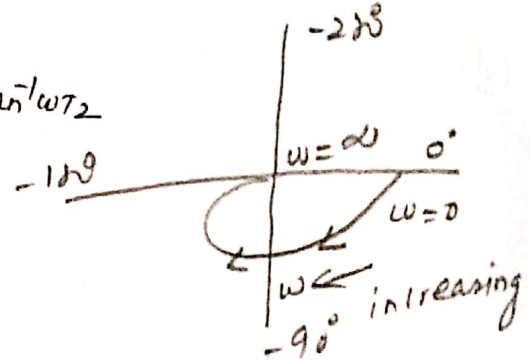 -270°
an⁻¹ωT2
ω=∞ 0°
-180
ω=0
ω ← increasing
-90°